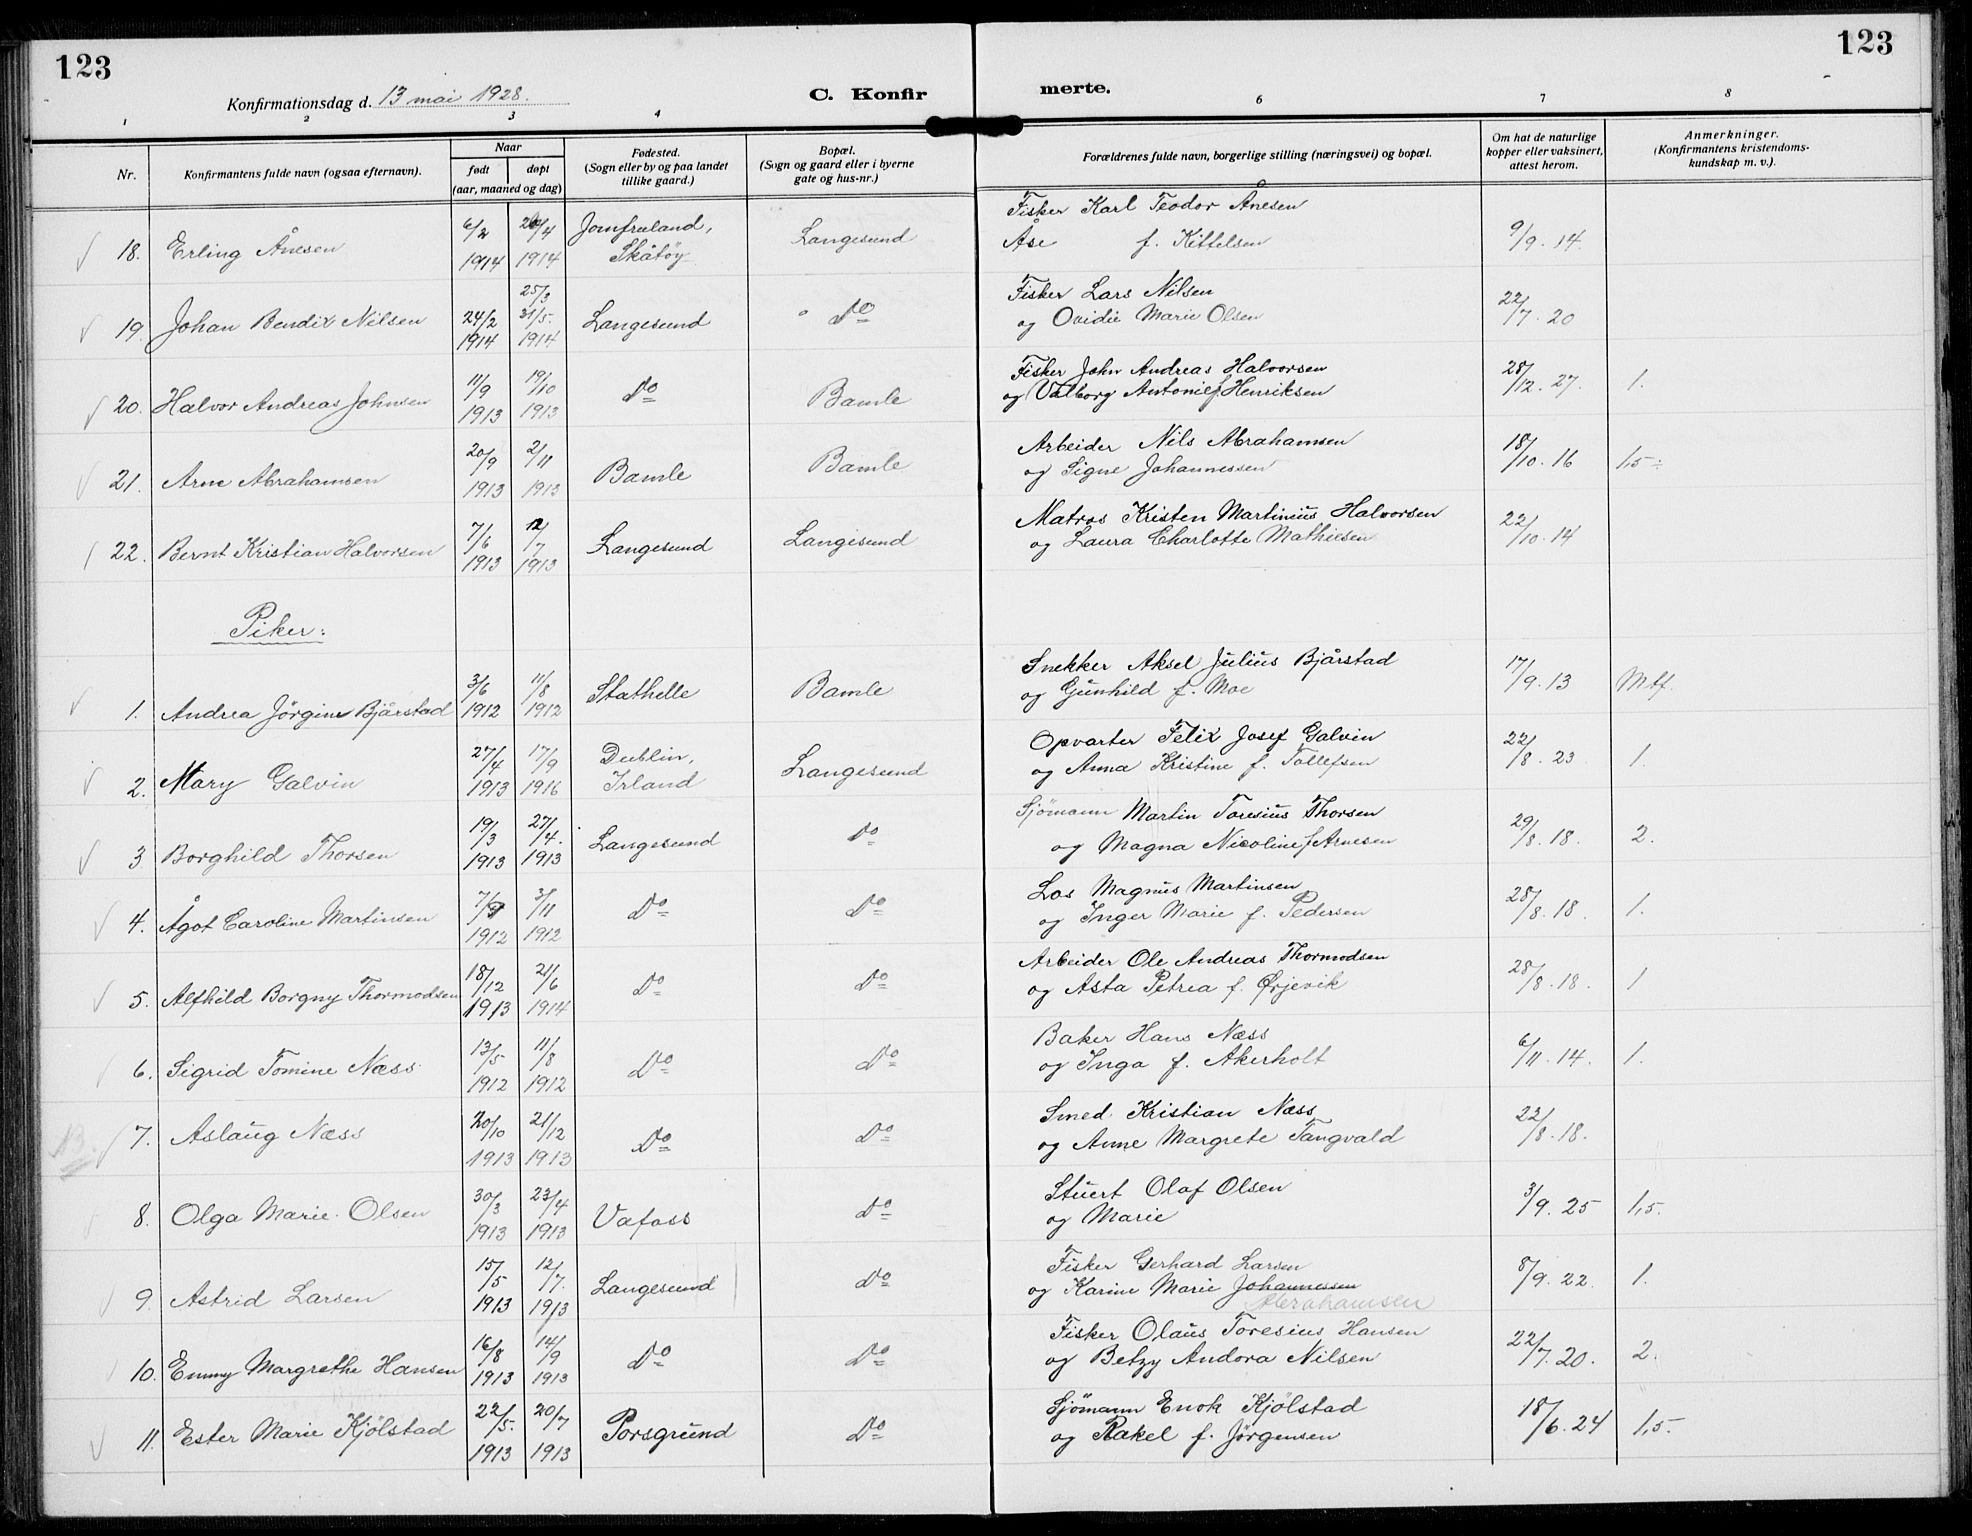 123
123
Konfirmationsdag d. 13 mai 1928.
C. Konfir
merte.
1 2 3 4 6 7 8
Nr.
Konfirmantens fulde navn (ogsaa efternavn).
Naar
født døpt
(aar, maaned og dag)
Fødested.
(Sogn eller by og paa landet
tillike gaard.)
Bopæl.
(Sogn og gaard eller i byerne
gate og hus-nr.)
Forældrenes fulde navn, borgerlige stilling (næringsvei) og bopæl.
Om hat de naturlige
kopper eller vaksinert,
attest herom.
Anmerkninger.
(Konfirmantens kristendoms-
kundskap m. v.).
6/2 26/4 Jomfruland, Fisker Karl Teodor Ånesen
18. Erling Ånesen 1914 1914 Skåtöy Langesund Åse f. Kittelsen 9/9. 14.
25/3 Fisker Lars Nilsen
19. Johan Bendix Nilsen 24/2 1914 31/5. 1914 Langesund Do og Ovidie Marie Olsen 22/7. 20
Fisker John Andreas Halvorsen
20. Halvor Andreas Johnsen 11/9 1913 19/10 1913 Do Bamle og Valborg Antonie f. Henriksen 28/12. 27. 1.
Arbeider Nils Abrahamsen
21. Arne Abrahamsen 20/9 1913 2/11 1913 Bamle Bamle og Signe Johannessen 18/10. 16 1,5 ÷
Matros Kristen Martinius Halvorsen
22. Bernt Kristian Halvorsen 7/6 1913 12/7 1913 Langesund Langesund og Laura Charlotte Mathiesen 22/10. 14
Piker:
Snekker Aksel Julius Bjårstad
1. Andrea Jörgine Bjårstad 3/6 1912 11/8 1912 Stathelle Bamle og Gunhild f. Moe 17/9. 13 Mtf.
Opvarter Felix Josef Galvin
2. Mary Galvin 27/4 1913 17/9 1916 Dublin, Irland Langesund og Anna Kristine f. Tollefsen 22/8. 23 1.
Sjömann Martin Toresius Thorsen
3 Borghild Thorsen 19/3 1913 27/4. 1913 Langesund Do og Magna Nicoline f Arnesen 29/8. 18. 2.
Los Magnus Martinsen
4. Ågot Caroline Martinsen 7/9 1912 3/11 1912 Do Do og Inger Marie f. Pedersen 28/8. 18. 1.
Arbeider Ole Andreas Thormodsen
5. Alfhild Borgny Thormodsen 18/12 1913 21/6 1914 Do Do og Asta Petrea f. Ørjevik 28/8. 18. 1
Baker Hans Næss
6. Sigrid Tomine Næss 13/5 1912 11/8 1912 Do Do og Inga f. Akerholt 6/11. 14. 1.
Smed Kristian Næss
7. Aslaug Næss 20/10 1913 21/12 1913 Do Do og Anne Margrete Tangvald 22/8. 18.
Stuert Olaf Olsen
8. Olga Marie Olsen 30/3 1913 23/4 1913 Vafoss Do og Marie 3/9. 25 1,5.
Fisker Gerhard Larsen
9. Astrid Larsen 15/5 1913 12/7. 1913 Langesund Do og Karine Marie Johannessen 8/9. 22. 1.
Abrahamsen
Fisker Olaus Toresius Hansen
10. Emmy Margrethe Hansen 16/8 1913 14/9 1913 Do Do og Betzy Andora Nilsen 22/7. 20. 2.
Sjömann Enok Kjölstad
11. Ester Marie Kjölstad 22/5. 1913 20/7 1913 Porsgrund Do og Rakel f. Jörgensen 18/6. 24 1,5.